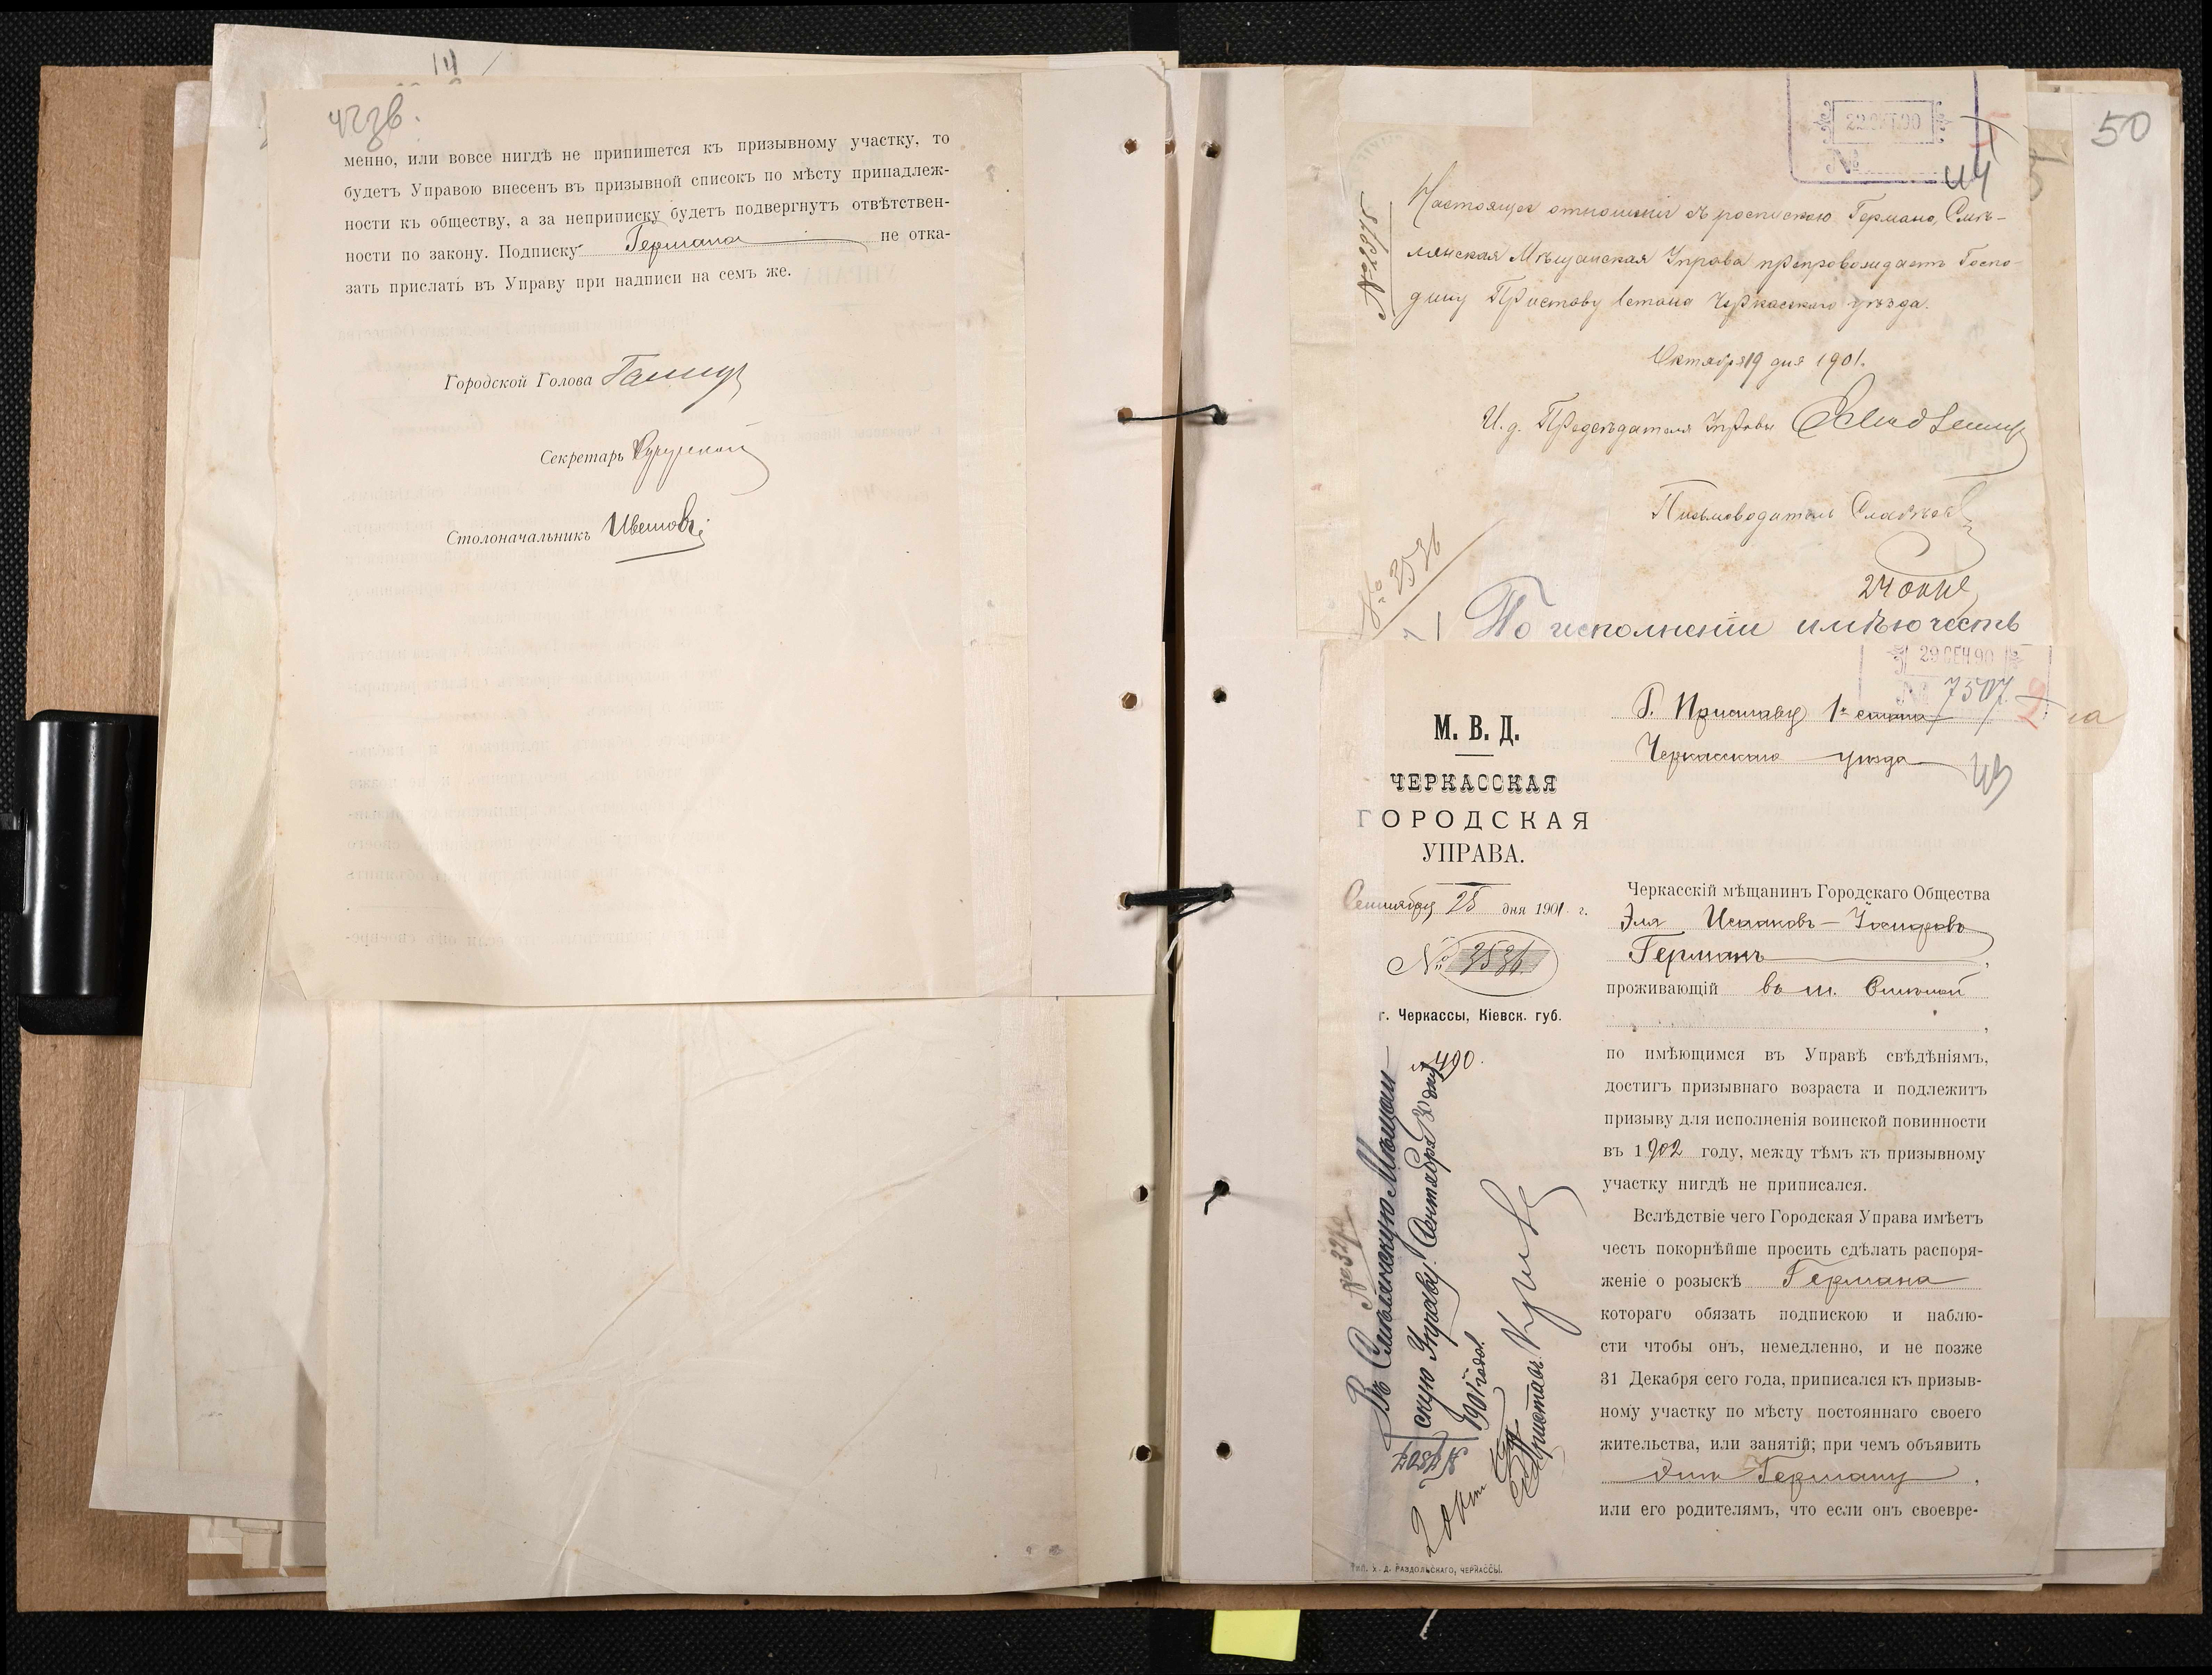 менно, или вовсе нигдѣ не припишется къ призывному участку, то
будетъ Управою внесенъ въ призывной списокъ по мѣсту принадлеж-
ности къ обществу, а за неприписку будетъ подвергнутъ отвѣтствен-
ности по закону. Подписку Германа не отка-
зать прислать въ Управу при надписи на семъ же.
Городской Голова
Секретарь
Столоначальникъ
50
44
Настоящее отношеніе съ роспискою Германа, Смѣ-
лянская Мѣщанская Управа препровождаетъ Госпо-
дину Приставу 1 стана Черкасскаго уѣзда.
Октября 19 дня 1901.
И. д. Предсѣдателя Управы
Письмоводитель
№ 3536
По исполненіи имѣю честь
29 СЕН 90
№ 7507
Г. Приставу 1го стана
Черкасскаго уѣзда
43
М. В. Д.
ЧЕРКАССКАЯ
ГОРОДСКАЯ
УПРАВА.
Сентября 25 дня 1901 г.
№ 3536
г. Черкассы, Кіевск. губ.
Черкасскій мѣщанинъ Городскаго Общества
Эля Исааковъ-Іосифовъ
Германъ,
проживающій въ м. Смѣлой
по имѣющимся въ Управѣ свѣдѣніямъ,
достигъ призывнаго возраста и подлежитъ
призыву для исполненія воинской повинности
въ 1902 году, между тѣмъ къ призывному
участку нигдѣ не приписался.
Вслѣдствіе чего Городская Управа имѣетъ
честь покорнѣйше просить сдѣлать распоря-
женіе о розыскѣ Германа
котораго обязать подпискою и наблю-
сти чтобы онъ, немедленно, и не позже
31 Декабря сего года, приписался къ призыв-
ному участку по мѣсту постояннаго своего
жительства, или занятій; при чемъ объявить
Герману,
или его родителямъ, что если онъ своевре-
В Смѣлянскую Мѣщан-
скую Управу. Сентября 30 дня
1901 года.
Приставъ
Тип. Х. Д. РАЗДОЛЬСКАГО, ЧЕРКАССЫ.